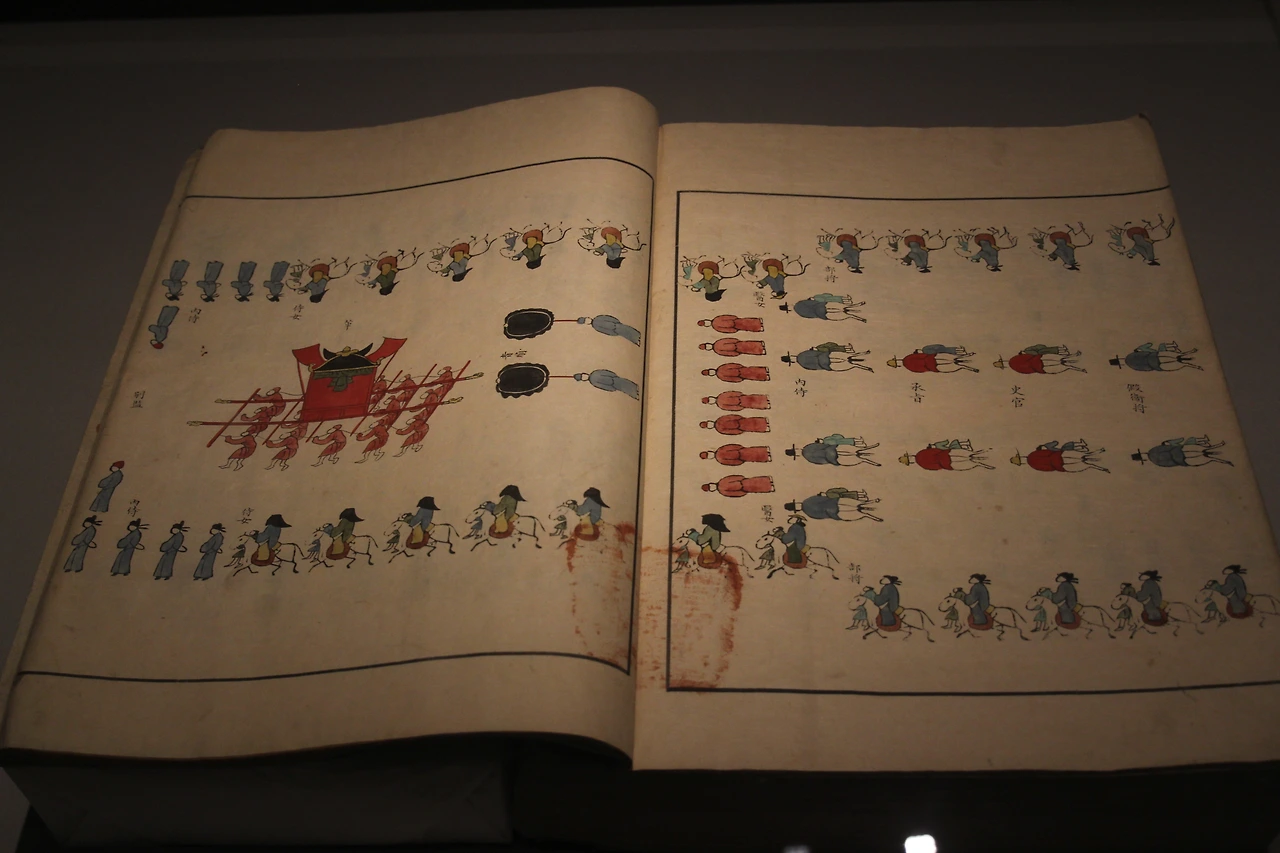 假衛將
史官
承旨
部將
內侍
部將
醫女
醫女
侍女
侍女
內侍
內侍
別監